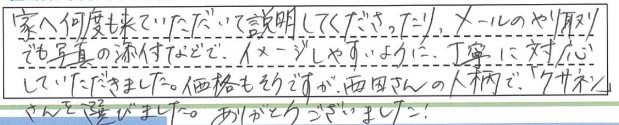 家へ何度も来ていただいて説明してくださったり、メールのやり取り
でも写真の添付などで、イメージしやすいように、丁寧に対応
していただきました。価格もそうですが、西田さんの人柄で、「クサネン」
さんを選びました。ありがとうございました！